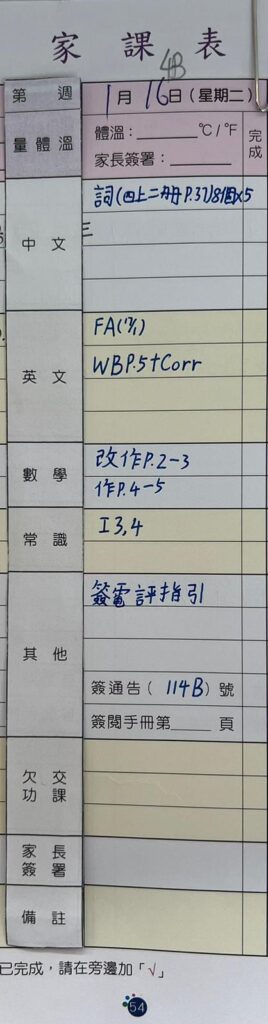 家課表
4B
第 週 1月16日(星期二)
量體溫 體溫:______°C/°F 完成
家長簽署:______
中文 詞(四上二冊P.37)8個x5
英文 FA(17/1)
WBP.5+Corr
數學 改作P.2-3
作P.4-5
常識 I3,4
其他 簽電評指引
簽通告(114B)號
簽閱手冊第____頁
欠交功課
家長簽署
備註
已完成,請在旁邊加「√」
54